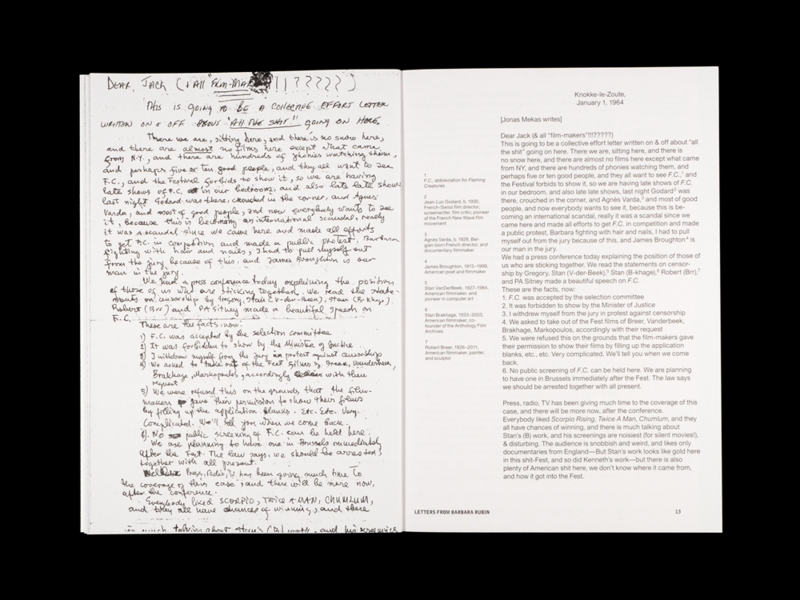 DEAR, JACK (& All "FILM-MAK !!?????)
THIS IS going TO BE A CONCERTE EFFORT LETTER
WRITTEN ON & OFF ABOUT "All THE SHIT" GOING ON HERE.
There we are, sitting here, and there is no snow here,
and there are almost no films here except what came
from N.Y., and there are hundreds of phonies watching them,
and perhaps five or ten good people, and they all want to see
F.C., and the Festival forbids to show it, so we are having
late shows of F.C. in our bedroom, and also late late shows
last night Godard was there, crouched in the corner, and Agnes
Varda, and most of good people, and now everybody wants to see
it, because this is becoming an international scandal, really
it was a scandal since we came here and made all efforts
to get F.C. in competition and made a public protest, Barbara
fighting with hair and nails, I had to pull myself out
from the jury because of this. and James Broughton is our
man in the jury.
We had a press conference today explaining the position
of those of us who are sticking together. We read the state-
ments on censorship by Gregory, Stan (V-der-Beek), Stan (B-khage),
Robert (Brr) and PA Sitney made a beautiful speech on
F.C.
These are the facts, now:
1) F.C. was accepted by the selection committee
2) It was forbidden to show by the Minister of Justice
3) I withdrew myself from the jury in protest against censorship
4) We asked to take out of the Fest films of Breer, Vanderbeek,
Brakhage, Markopoulos, accordingly with their
request
5) We were refused this on the grounds, that the film-
makers gave their permission to show their films
by filling up the application blanks. Etc. Etc. Very
complicated. We'll tell you when we come back.
6). No public screening of F.C. can be held here.
We are planning to have one in Brussels immediately
after the Fest. The law says, we should be arrested
together with all present.
Press, Radio, TV has been giving much time to
the coverage of this case, and there will be more now,
after the conference.
Everybody liked SCORPIO, TWICE A MAN, CHUMLUM,
and they all have chances of winning, and there
is much talking about Stan's (B) work, and his screenings
1
F.C., abbreviation for Flaming
Creatures
2
Jean-Luc Godard, b. 1930,
French-Swiss film director,
screenwriter, film critic, pioneer
of the French New Wave film
movement
3
Agnès Varda, b. 1928, Bel-
gian-born French director, and
documentary filmmaker
4
James Broughton, 1913–1999,
American poet and filmmaker
5
Stan VanDerBeek, 1927–1984,
American filmmaker, and
pioneer in computer art
6
Stan Brakhage, 1933–2003,
American filmmaker, co-
founder of the Anthology Film
Archives
7
Robert Breer, 1926–2011,
American filmmaker, painter,
and sculptor
Knokke-le-Zoute,
January 1, 1964
[Jonas Mekas writes]
Dear Jack (& all "film-makers"!!!?????)
This is going to be a collective effort letter written on & off about "all
the shit" going on here. There we are, sitting here, and there is
no snow here, and there are almost no films here except what came
from NY, and there are hundreds of phonies watching them, and
perhaps five or ten good people, and they all want to see F.C.,¹ and
the Festival forbids to show it, so we are having late shows of F.C.
in our bedroom, and also late shows, last night Godard² was
there, crouched in the corner, and Agnès Varda,³ and most of good
people, and now everybody wants to see it, because this is be-
coming an international scandal, really it was a scandal since we
came here and made all efforts to get F.C. in competition and made
a public protest, Barbara fighting with hair and nails, I had to pull
myself out from the jury because of this, and James Broughton⁴ is
our man in the jury.
We had a press conference today explaining the position of those of
us who are sticking together. We read the statements on censor-
ship by Gregory, Stan (V-der-Beek),⁵ Stan (B-khage),⁶ Robert (Brr),⁷
and PA Sitney made a beautiful speech on F.C.
These are the facts, now:
1. F.C. was accepted by the selection committee
2. It was forbidden to show by the Minister of Justice
3. I withdrew myself from the jury in protest against censorship
4. We asked to take out of the Fest films of Breer, Vanderbeek,
Brakhage, Markopoulos, accordingly with their request
5. We were refused this on the grounds that the film-makers gave
their permission to show their films by filling up the application
blanks, etc., etc. Very complicated. We'll tell you when we come
back.
6. No public screening of F.C. can be held here. We are planning
to have one in Brussels immediately after the Fest. The law says
we should be arrested together with all present.
Press, radio, TV has been giving much time to the coverage of this
case, and there will be more now, after the conference.
Everybody liked Scorpio Rising, Twice A Man, Chumlum, and they
all have chances of winning, and there is much talking about
Stan's (B) work, and his screenings are noisiest (for silent movies!),
& disturbing. The audience is snobbish, and weird, and likes only
documentaries from England—But Stan's work looks like gold here
in this shit-Fest, and so did Kenneth's work—but there is also
plenty of American shit here, we don't know where it came from,
and how it got into the Fest.
LETTERS FROM BARBARA RUBIN
13